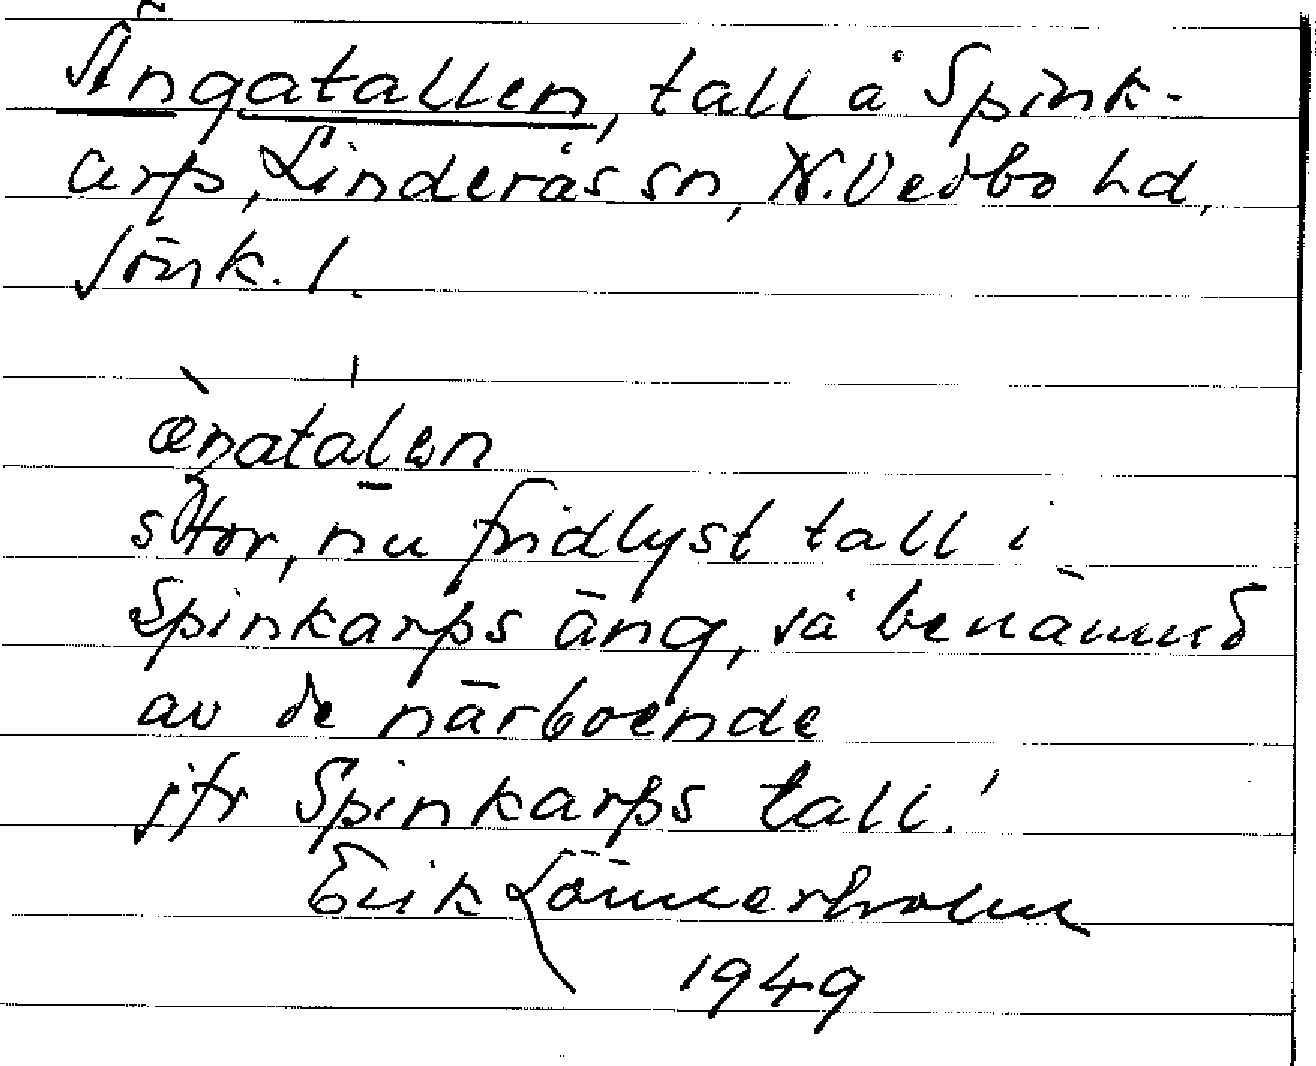 Ängatallen, tall å Spink-
arp, Linderås sn, N. Vedbo hd,
Jönk. l.
ænatalen
stor, nu fridlyst tall i
Spinkarps äng, så benämnd
av de närboende
jfr Spinkarps tall!
Erik Lönnerholm
1949